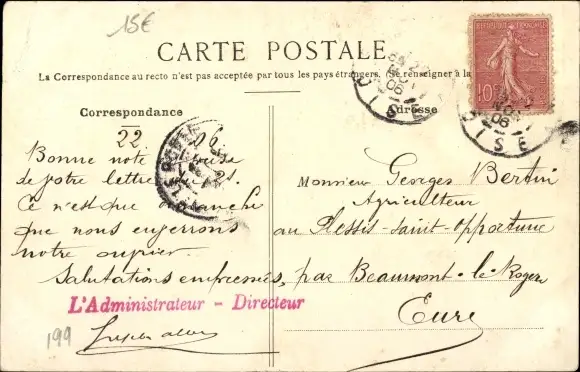 15€
CARTE POSTALE
La Correspondance au recto n'est pas acceptée par tous les pays étrangers. (Se renseigner à la
Correspondance
Adresse
22 06
Bonne note
de votre lettre du 21.
Ce n'est que
que nous
notre
Salutations empressées,
L'Administrateur - Directeur
199
Monsieur Georges Bertin
Agriculteur
au Plessis-saint-Opportune
par Beaumont-le-Roger
Eure
10
06
OISE
06
OISE